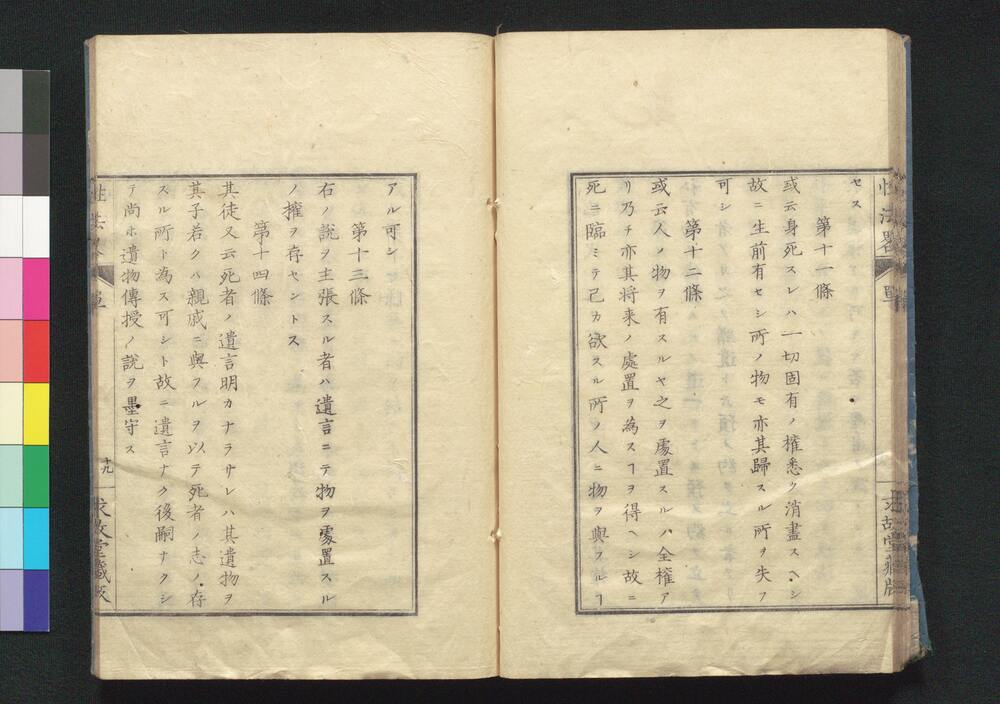 セス
第十一條
或云身死スレハ一切固有ノ權悉ク消盡スヘシ
故ニ生前有セシ所ノ物モ亦其歸スル所ヲ失フ
可シ
第十二條
或云人ノ物ヲ有スルヤ之ヲ處置スルハ全權ア
リ乃チ亦其将来ノ處置ヲ為スヿヲ得ヘシ故ニ
死ニ臨ミテ己カ欲スル所ノ人ニ物ヲ與フルヿ
性法畧
單
求故堂藏版
アル可シ
第十三條
右ノ說ヲ主張スル者ハ遺言ニテ物ヲ處置スル
ノ權ヲ存セントス
第十四條
其徒又云死者ノ遺言明カナラサレハ其遺物ヲ
其子若クハ親戚ニ與フルヲ以テ死者ノ志ノ存
スル所ト為ス可シト故ニ遺言ナク後嗣ナクシ
テ尚ホ遺物傳授ノ說ヲ墨守ス
性法畧
單
十九
求故堂藏版